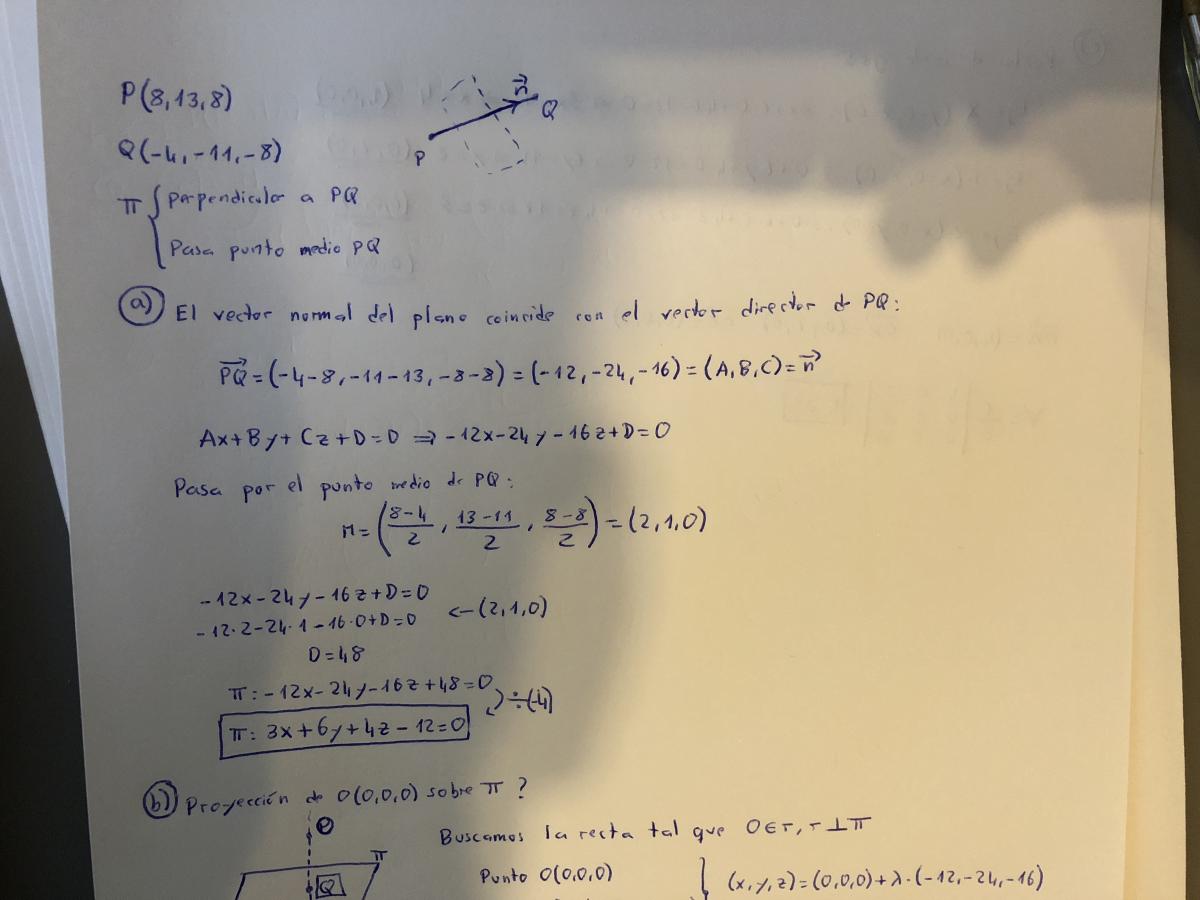 P(8,13,8)
Q(-4,-11,-8)
P n⃗ Q
π { perpendicular a PQ
Pasa punto medio PQ
a) El vector normal del plano coincide con el vector director de PQ:
PQ⃗=(-4-8,-11-13,-8-8)=(-12,-24,-16)=(A,B,C)=n⃗
Ax+By+Cz+D=0 ⇒ -12x-24y-16z+D=0
Pasa por el punto medio de PQ:
M=((8-4)/2, (13-11)/2, (8-8)/2)=(2,1,0)
-12x-24y-16z+D=0
-12·2-24·1-16·0+D=0 ←(2,1,0)
D=48
π:-12x-24y-16z+48=0
÷(-4)
π: 3x+6y+4z-12=0
b) Proyección de O(0,0,0) sobre π?
O
π
Q
Buscamos la recta tal que O∈r, r⊥π
Punto O(0,0,0)
(x,y,z)=(0,0,0)+λ·(-12,-24,-16)